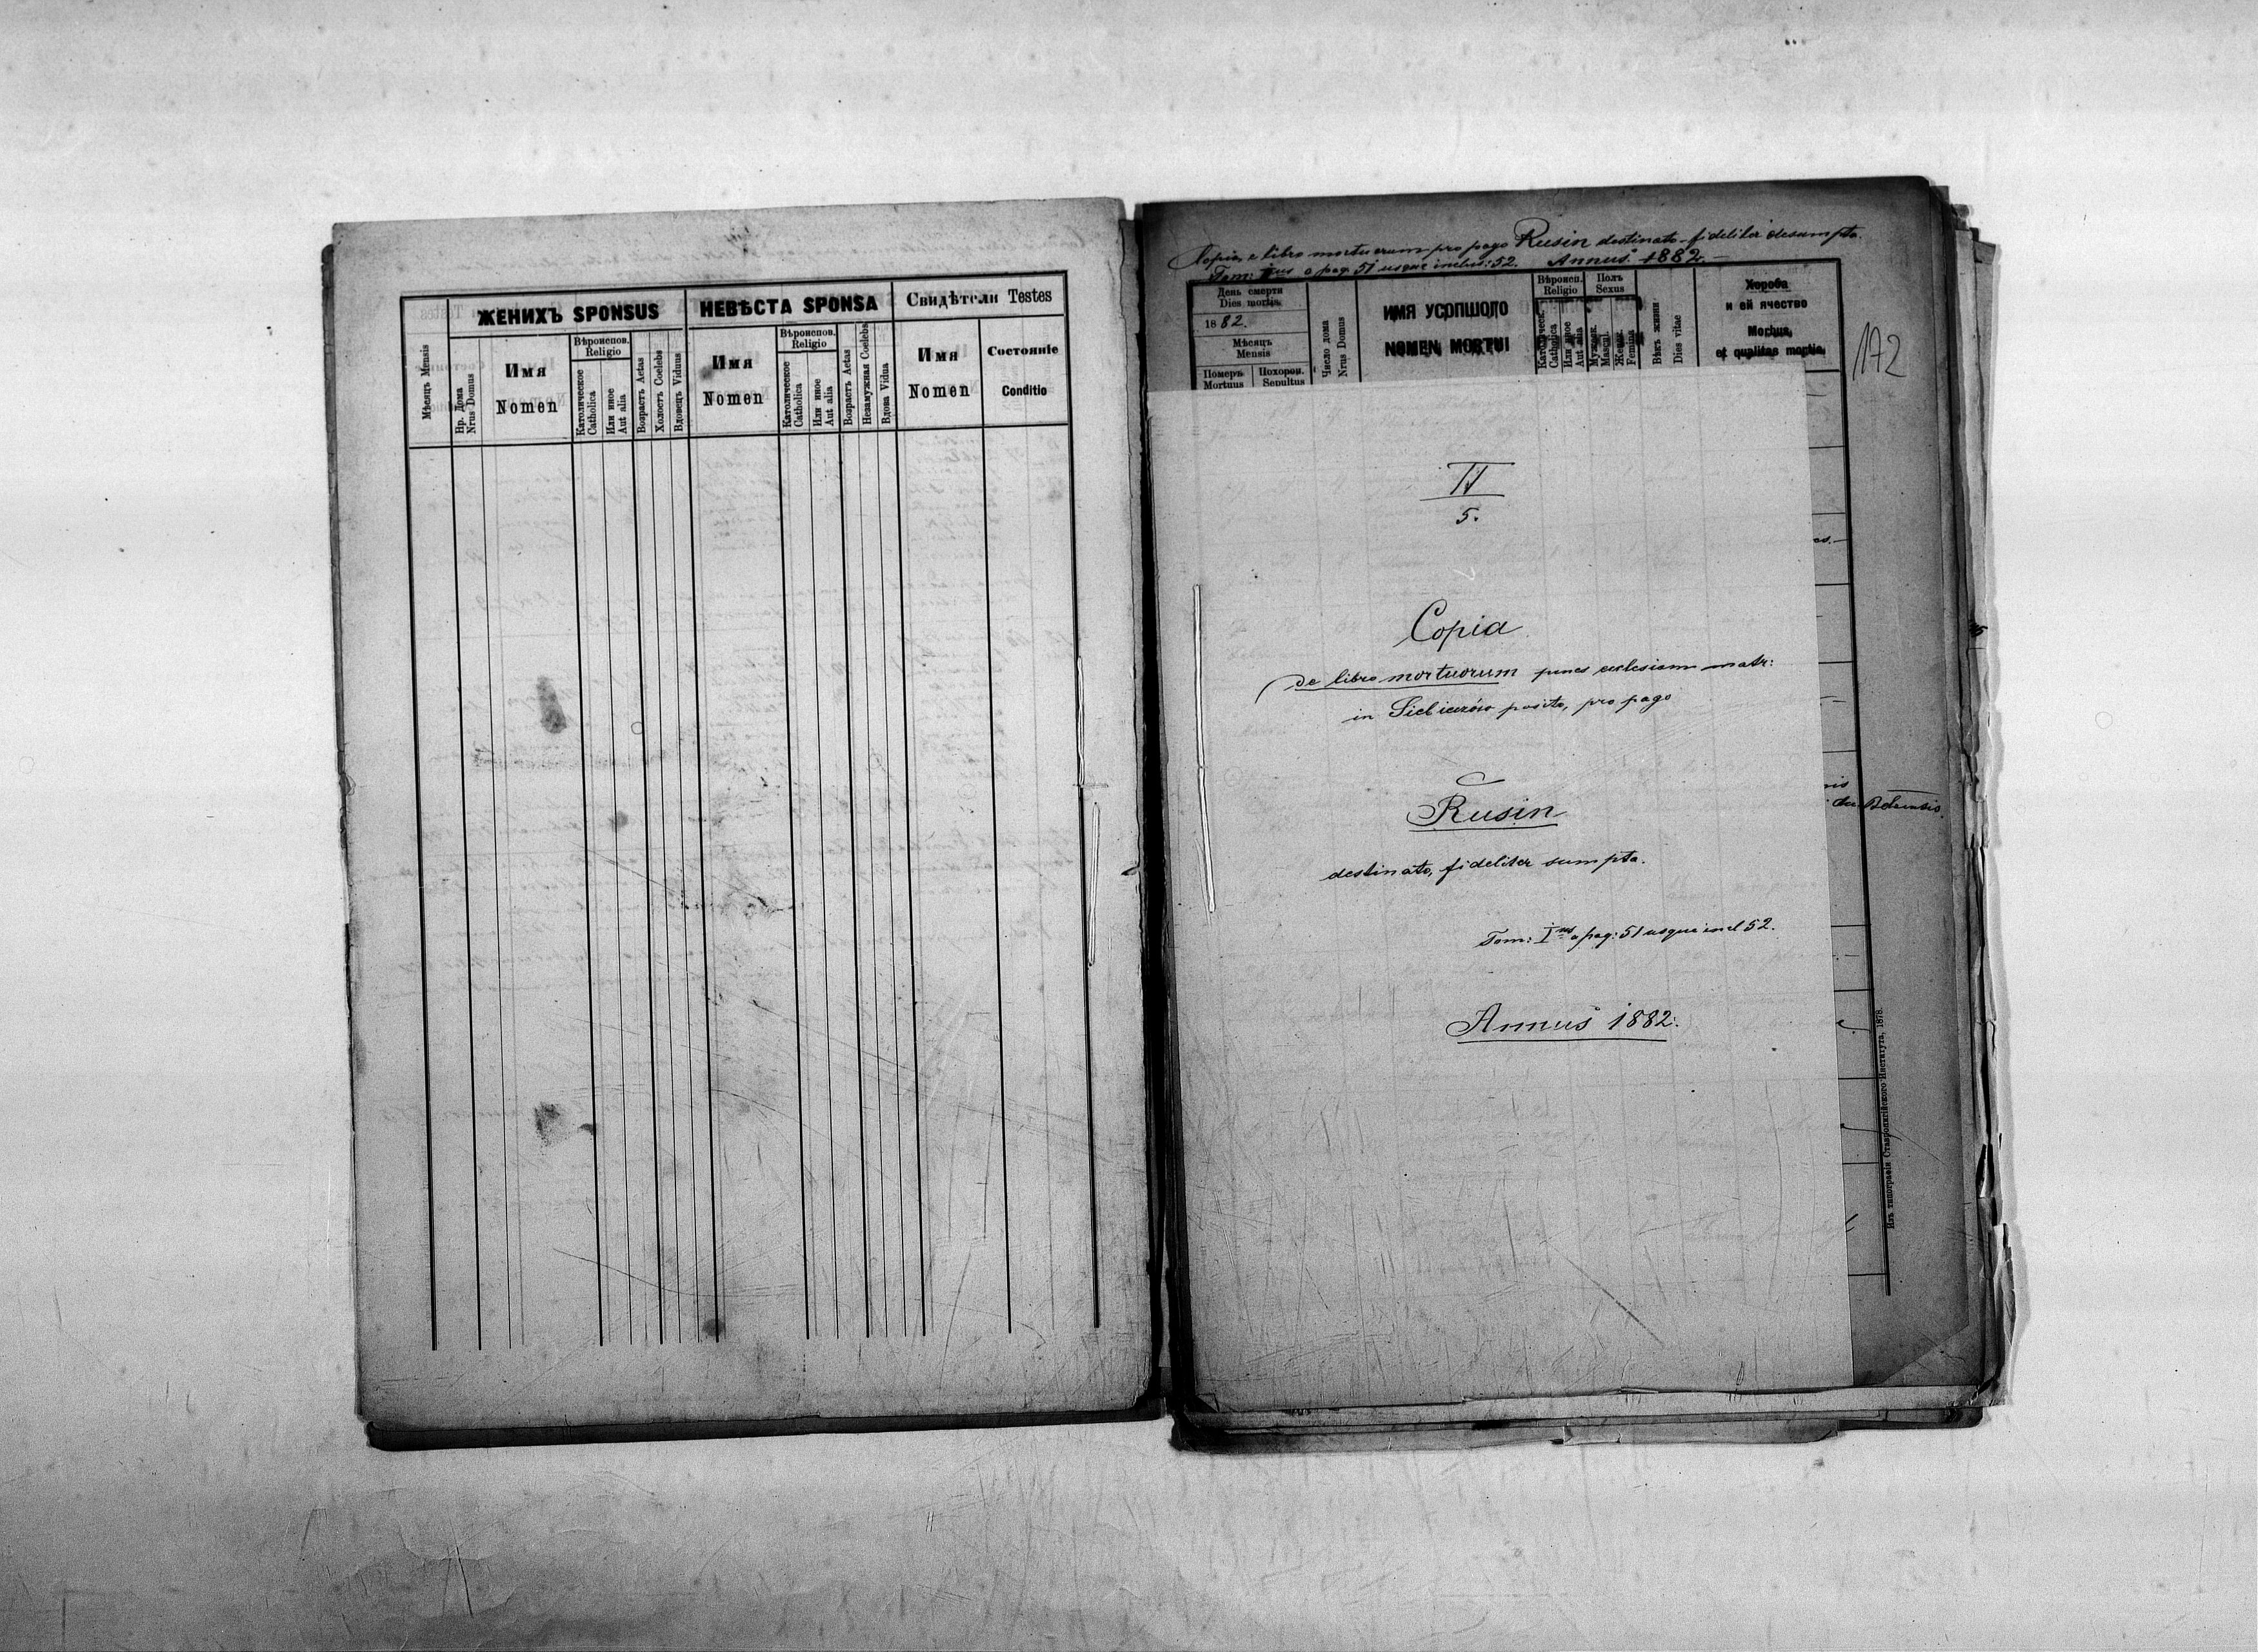 ЖЕНИХЪ SPONSUS
НЕВѢСТА SPONSA
Свидѣтели Testes
Мѣсяцъ Mensis
Нр. Дома
Nrus Domus
Имя
Nomen
Вѣроиспов.
Religio
Католическое
Catholica
Или иное
Aut alia
Возрастъ Aetas
Холостъ Coelebs
Вдовецъ Viduus
Имя
Nomen
Вѣроиспов.
Religio
Католическое
Catholica
Или иное
Aut alia
Возрастъ Aetas
Незамужная Coelebs
Вдова Vidua
Имя
Nomen
Состояніе
Conditio
Copia e libro mortuorum pro pago Rusin destinato fideliter desumpta.
Tom: I us a pag. 51 usque inclus: 52. Annus 1882.
День смерти
Dies mortis
1882.
Мѣсяцъ
Mensis
Померъ
Mortuus
Похорон.
Sepultus
Число дома
Nrus Domus
ИМЯ УСОПШОГО
NOMEN MORTUI
Вѣроисп.
Religio
Католическ.
Catholica
Или иное
Aut alia
Полъ
Sexus
Мужеск.
Mascul.
Женск.
Femina
Вѣкъ жизни
Dies vitae
Хороба
и ей ячество
Morbus,
et qualitas mortis
172
IV
5.
Copia
de libro mortuorum penes ecclesiam matr:
in posito, pro pago
Rusin
destinato, fideliter sumpta.
Tom: I us a pag: 51 usque incl 52.
Annus 1882.
Изъ типографіи Ставропигійского Института, 1878.